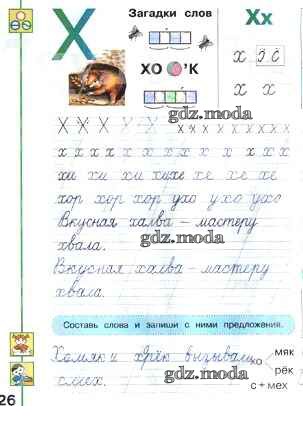 Загадки слов
Хх
Х
ХО 'К
х
gdz.moda
х х
Х Х Х Х Х Х Х Х Х Х Х Х Х Х
gdz.moda
х х х х х х х х х х х х
хи хи хи хихи хе хе хе
хор хор хор ухо ухо ухо
Вкусная халва – мастеру
gdz.moda
хвала.
Вкусная халва – мастеру
хвала. gdz.moda
Составь слова и запиши с ними предложения.
Хомяк и хрёк вызывали
хо мяк
рёк
смех. gdz.moda с + мех
26